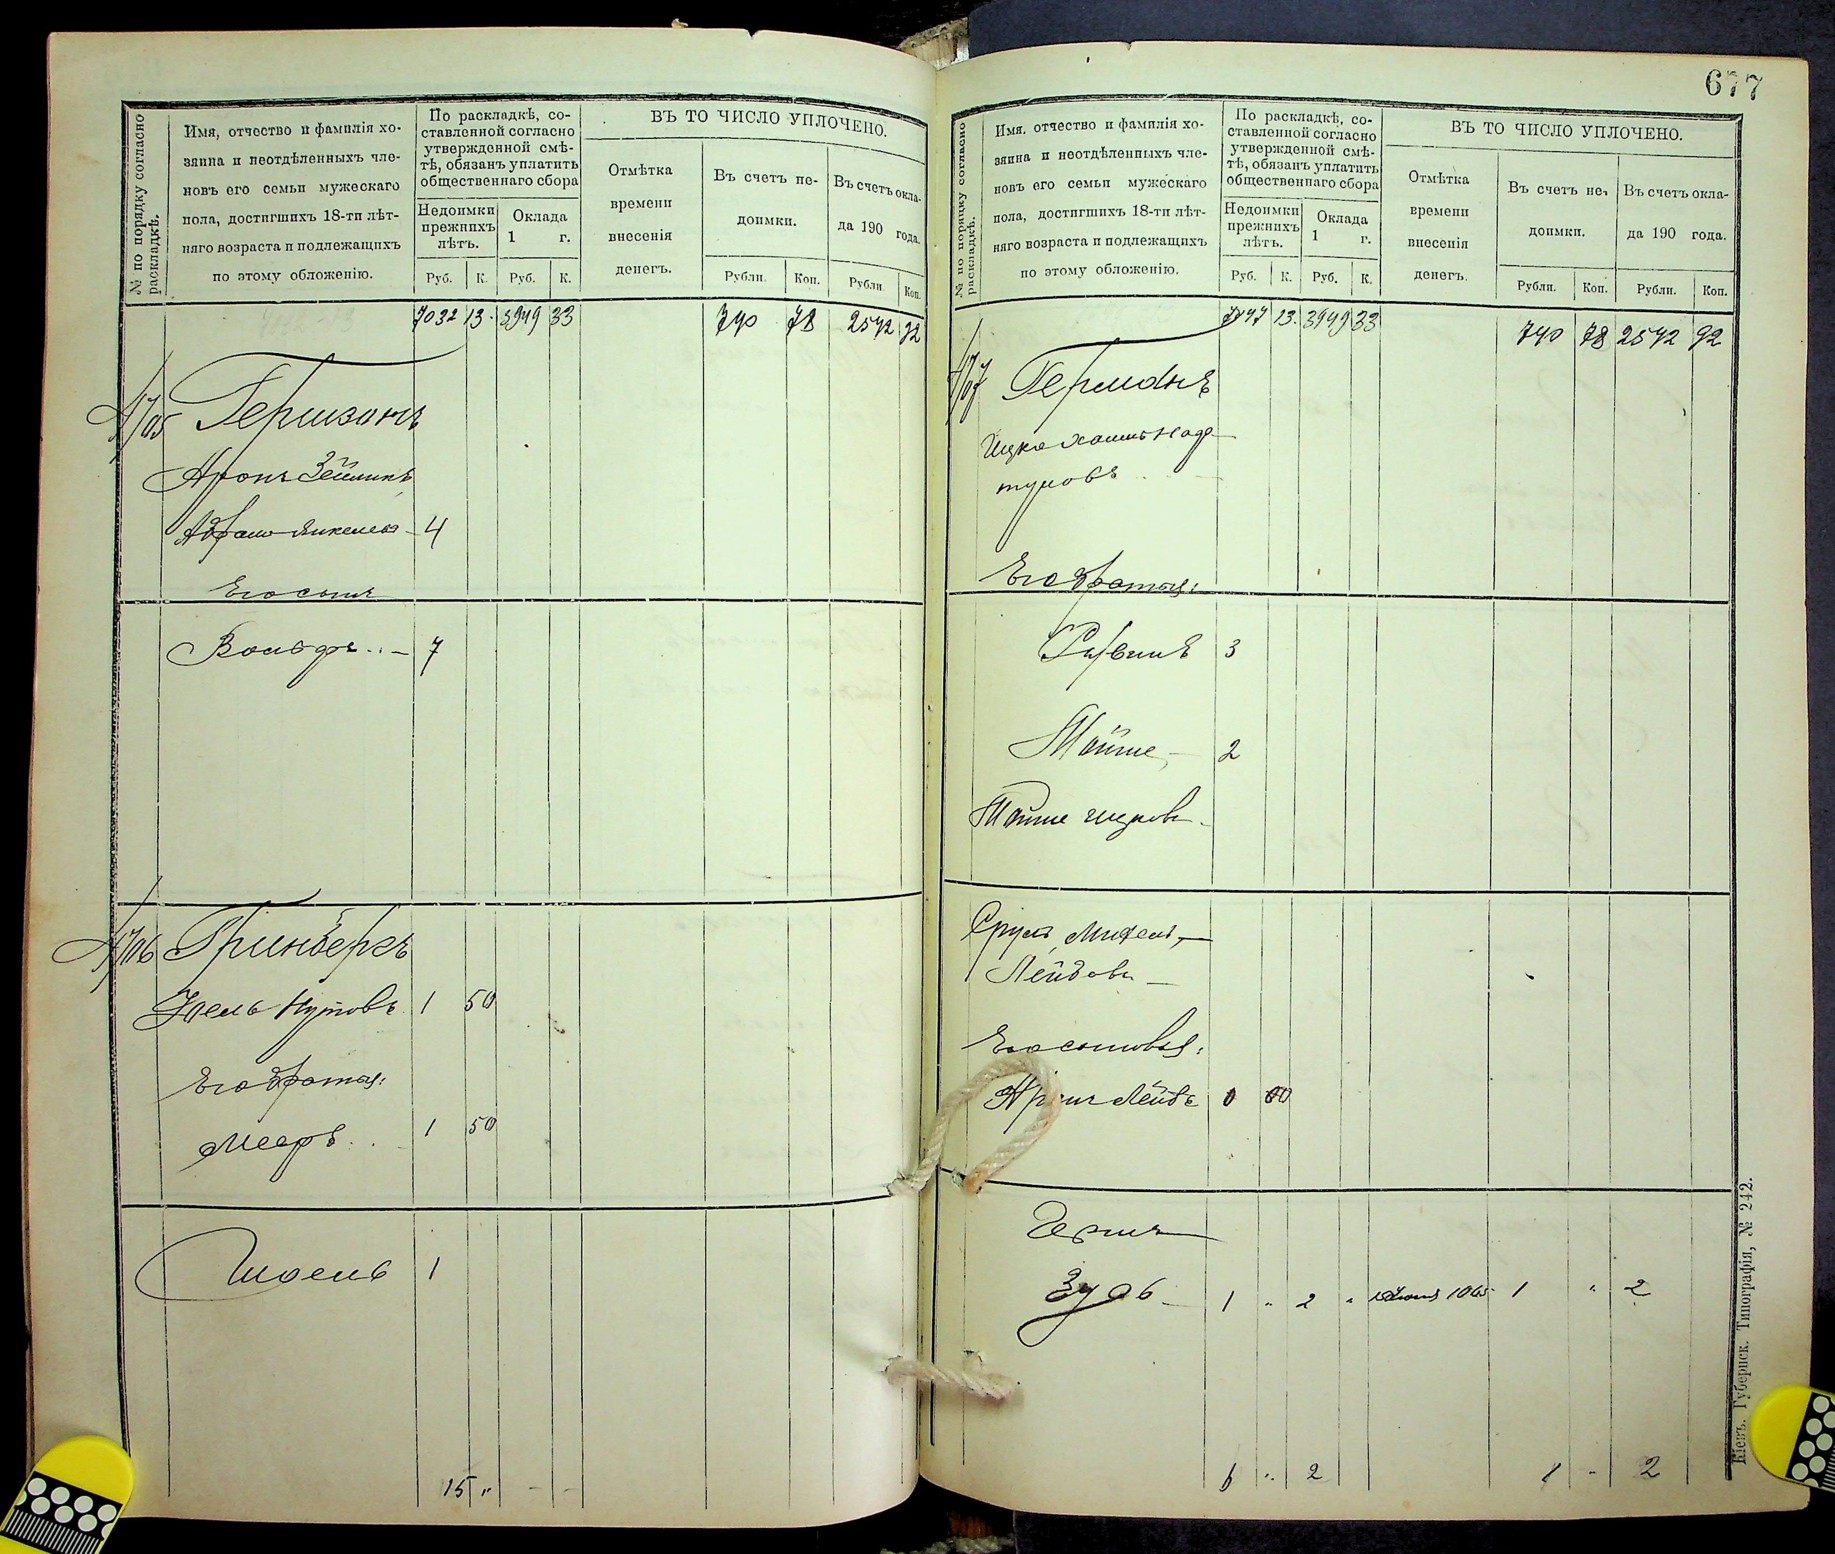 677
№ по порядку согласно раскладкѣ.
Имя, отчество и фамилія хо-
зяина и неотдѣленныхъ чле-
новъ его семьи мужескаго
пола, достигшихъ 18-ти лѣт-
няго возраста и подлежащихъ
по этому обложенію.
По раскладкѣ, со-
ставленной согласно
утвержденной смѣ-
тѣ, обязанъ уплатить
общественнаго сбора
Недоимки
прежнихъ
лѣтъ.
Оклада
1 г.
Руб. К. Руб. К.
ВЪ ТО ЧИСЛО УПЛОЧЕНО.
Отмѣтка
времени
внесенія
денегъ.
Въ счетъ не-
доимки.
Въ счетъ окла-
да 190 года.
Рубли. Коп. Рубли. Коп.
7032 13 3949 33 740 78 2542 92
4705 Гершзонъ
Аронъ Зейликъ
Абрамъ Янкелевъ 4
Его сынъ
Вольфъ 7
4706 Гринбергъ
Іоель Нутовъ 1 50
Его братья:
Мееръ 1 50
Шоель 1
15 " - -
№ по порядку согласно раскладкѣ.
Имя, отчество и фамилія хо-
зяина и неотдѣленныхъ чле-
новъ его семьи мужескаго
пола, достигшихъ 18-ти лѣт-
няго возраста и подлежащихъ
по этому обложенію.
По раскладкѣ, со-
ставленной согласно
утвержденной смѣ-
тѣ, обязанъ уплатить
общественнаго сбора
Недоимки
прежнихъ
лѣтъ.
Оклада
1 г.
Руб. К. Руб. К.
ВЪ ТО ЧИСЛО УПЛОЧЕНО.
Отмѣтка
времени
внесенія
денегъ.
Въ счетъ не-
доимки.
Въ счетъ окла-
да 190 года.
Рубли. Коп. Рубли. Коп.
7047 13 3949 33 740 78 2542 92
4707 Германъ
Ицко Хаимъ
Его братья:
Рувинъ 3
Мойше 2
Мойше Ицковъ
Сруль Михель
Лейбовъ
Его сыновья:
Аронъ Лейбъ
Гершъ
Зусь 1 " 2 " 1 " 2
6 " 2 1 - 2
Кіевъ. Губернск. Типографія, № 242.